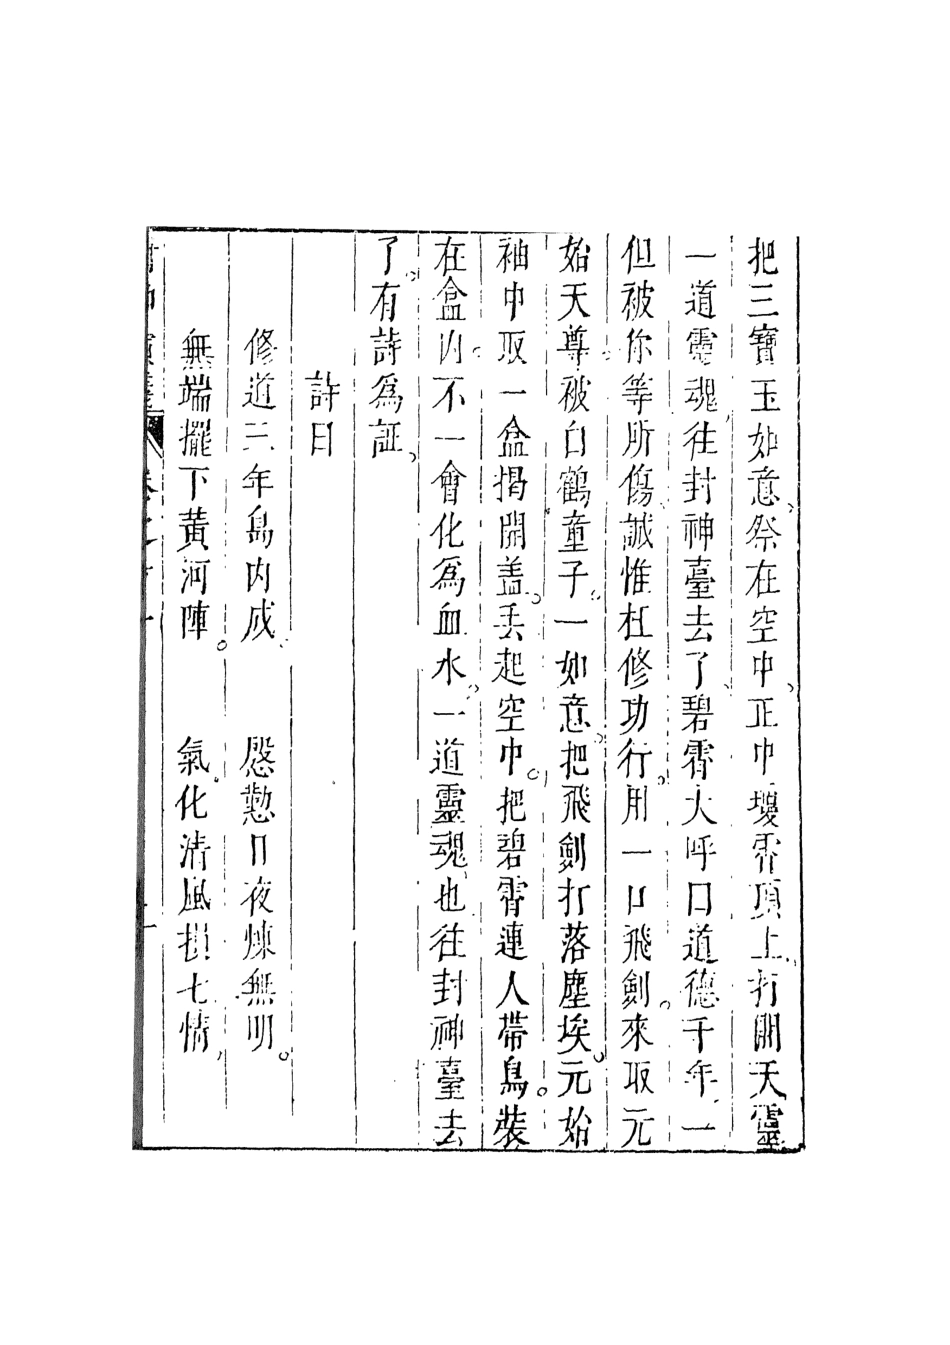 把三寶玉如意。祭在空中。正中瓊霄頂上。打開天靈
一道靈魂往封神臺去了。碧霄大呼口道德千年一
但被你等所傷。誠惟枉修功行。用一口飛劍。來取元
始天尊被白鶴童子。一如意。把飛劍打落塵埃。元始
袖中取一盒揭開盖。丟起空中。把碧霄連人帶鳥。裝
在盒內。不一會化爲血水。一道靈魂也往封神臺去
了。有詩爲証。
詩曰
修道三年島內成　慇懃日夜煉無明。
無端擺下黃河陣。　氣化清風損七情